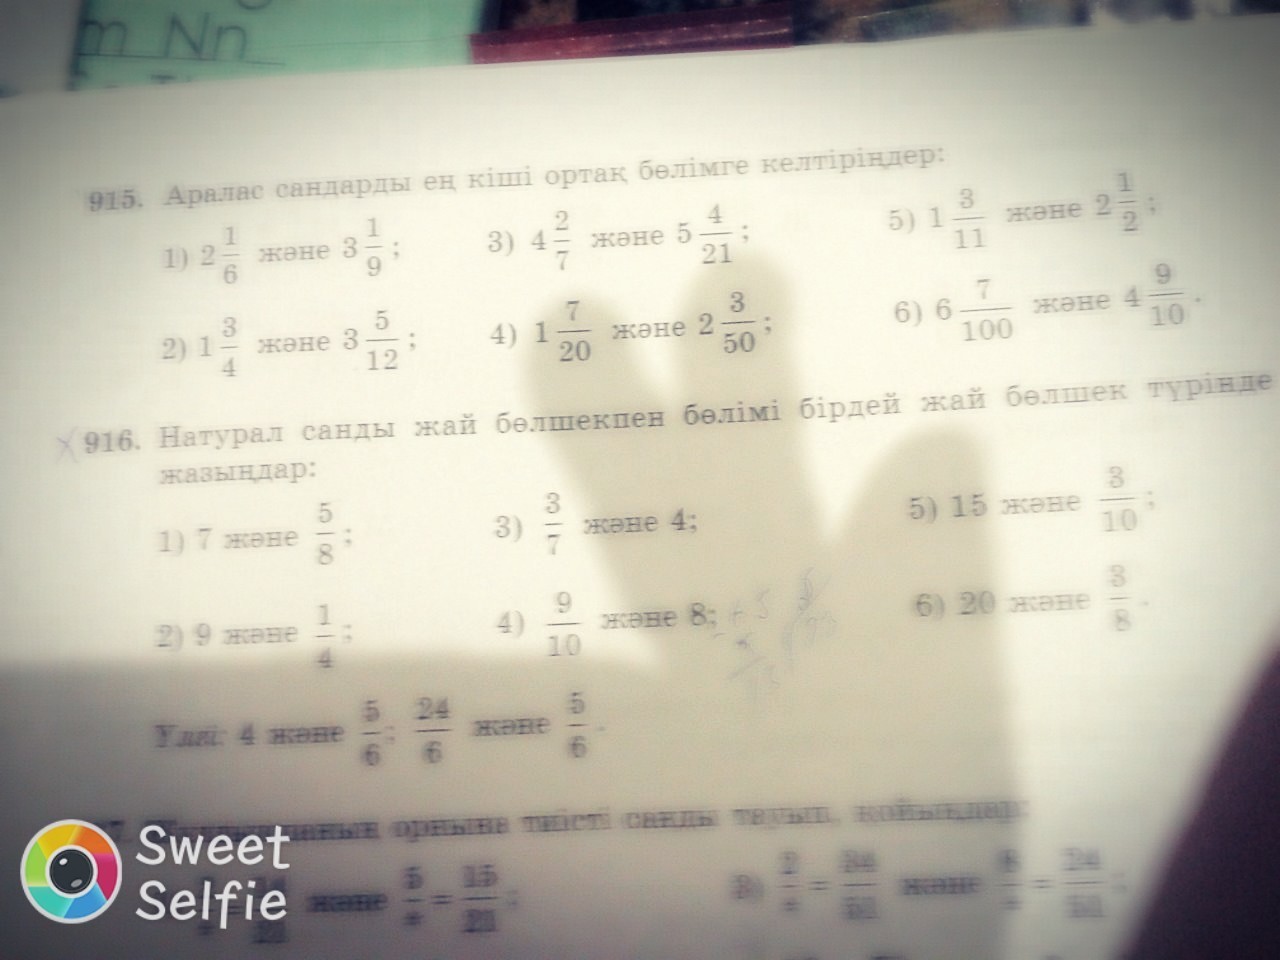 m Nn
915. Аралас сандарды ең кіші ортақ бөлімге келтіріңдер:
1) 2 1/6 және 3 1/9; 3) 4 2/7 және 5 4/21; 5) 1 3/11 және 2 1/2;
2) 1 3/4 және 3 5/12; 4) 1 7/20 және 2 3/50; 6) 6 7/100 және 4 9/10.
916. Натурал санды жай бөлшекпен бөлімі бірдей жай бөлшек түрінде
жазыңдар:
1) 7 және 5/8; 3) 3/7 және 4; 5) 15 және 3/10;
2) 9 және 1/4; 4) 9/10 және 8; 6) 20 және 3/8.
Үлгі: 4 және 5/6; 24/6 және 5/6.
орнына тиісті санды тауып, қойыңдар:
және 5/* = 15/21; 3) 2/* = 34/51 және 8/* = 24/51;
Sweet
Selfie